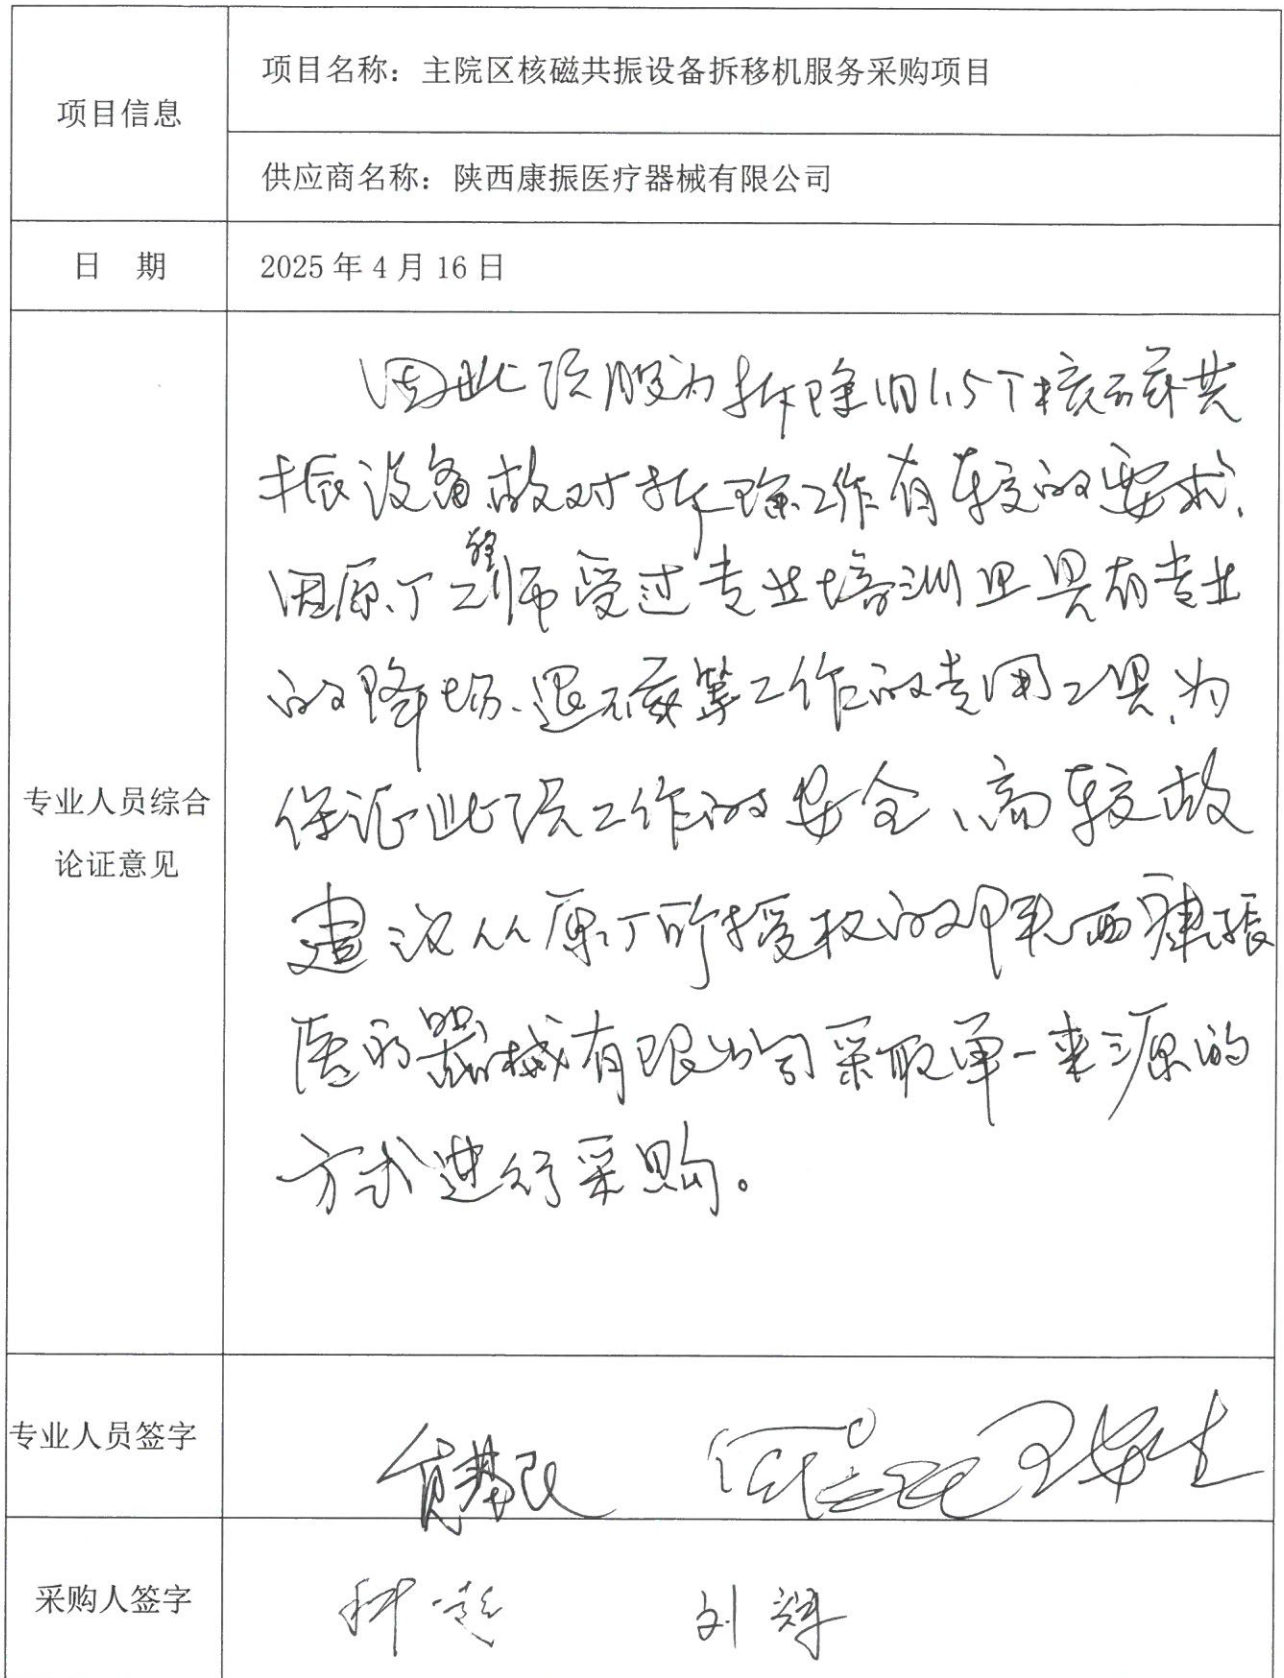 项目信息
项目名称：主院区核磁共振设备拆移机服务采购项目
供应商名称：陕西康振医疗器械有限公司
日 期
2025年4月16日
专业人员综合
论证意见
因此项服为拆除旧1.5T核磁共
振设备故对拆除工作有较的要求，
因原厂工程师受过专业培训且具有专业
的降场、退磁等工作的专用工具，为
保证此项工作的安全、高较故
建议从原厂所授权的陕西康振
医疗器械有限公司采取单一来源的
方式进行采购。
专业人员签字
采购人签字
刘辉